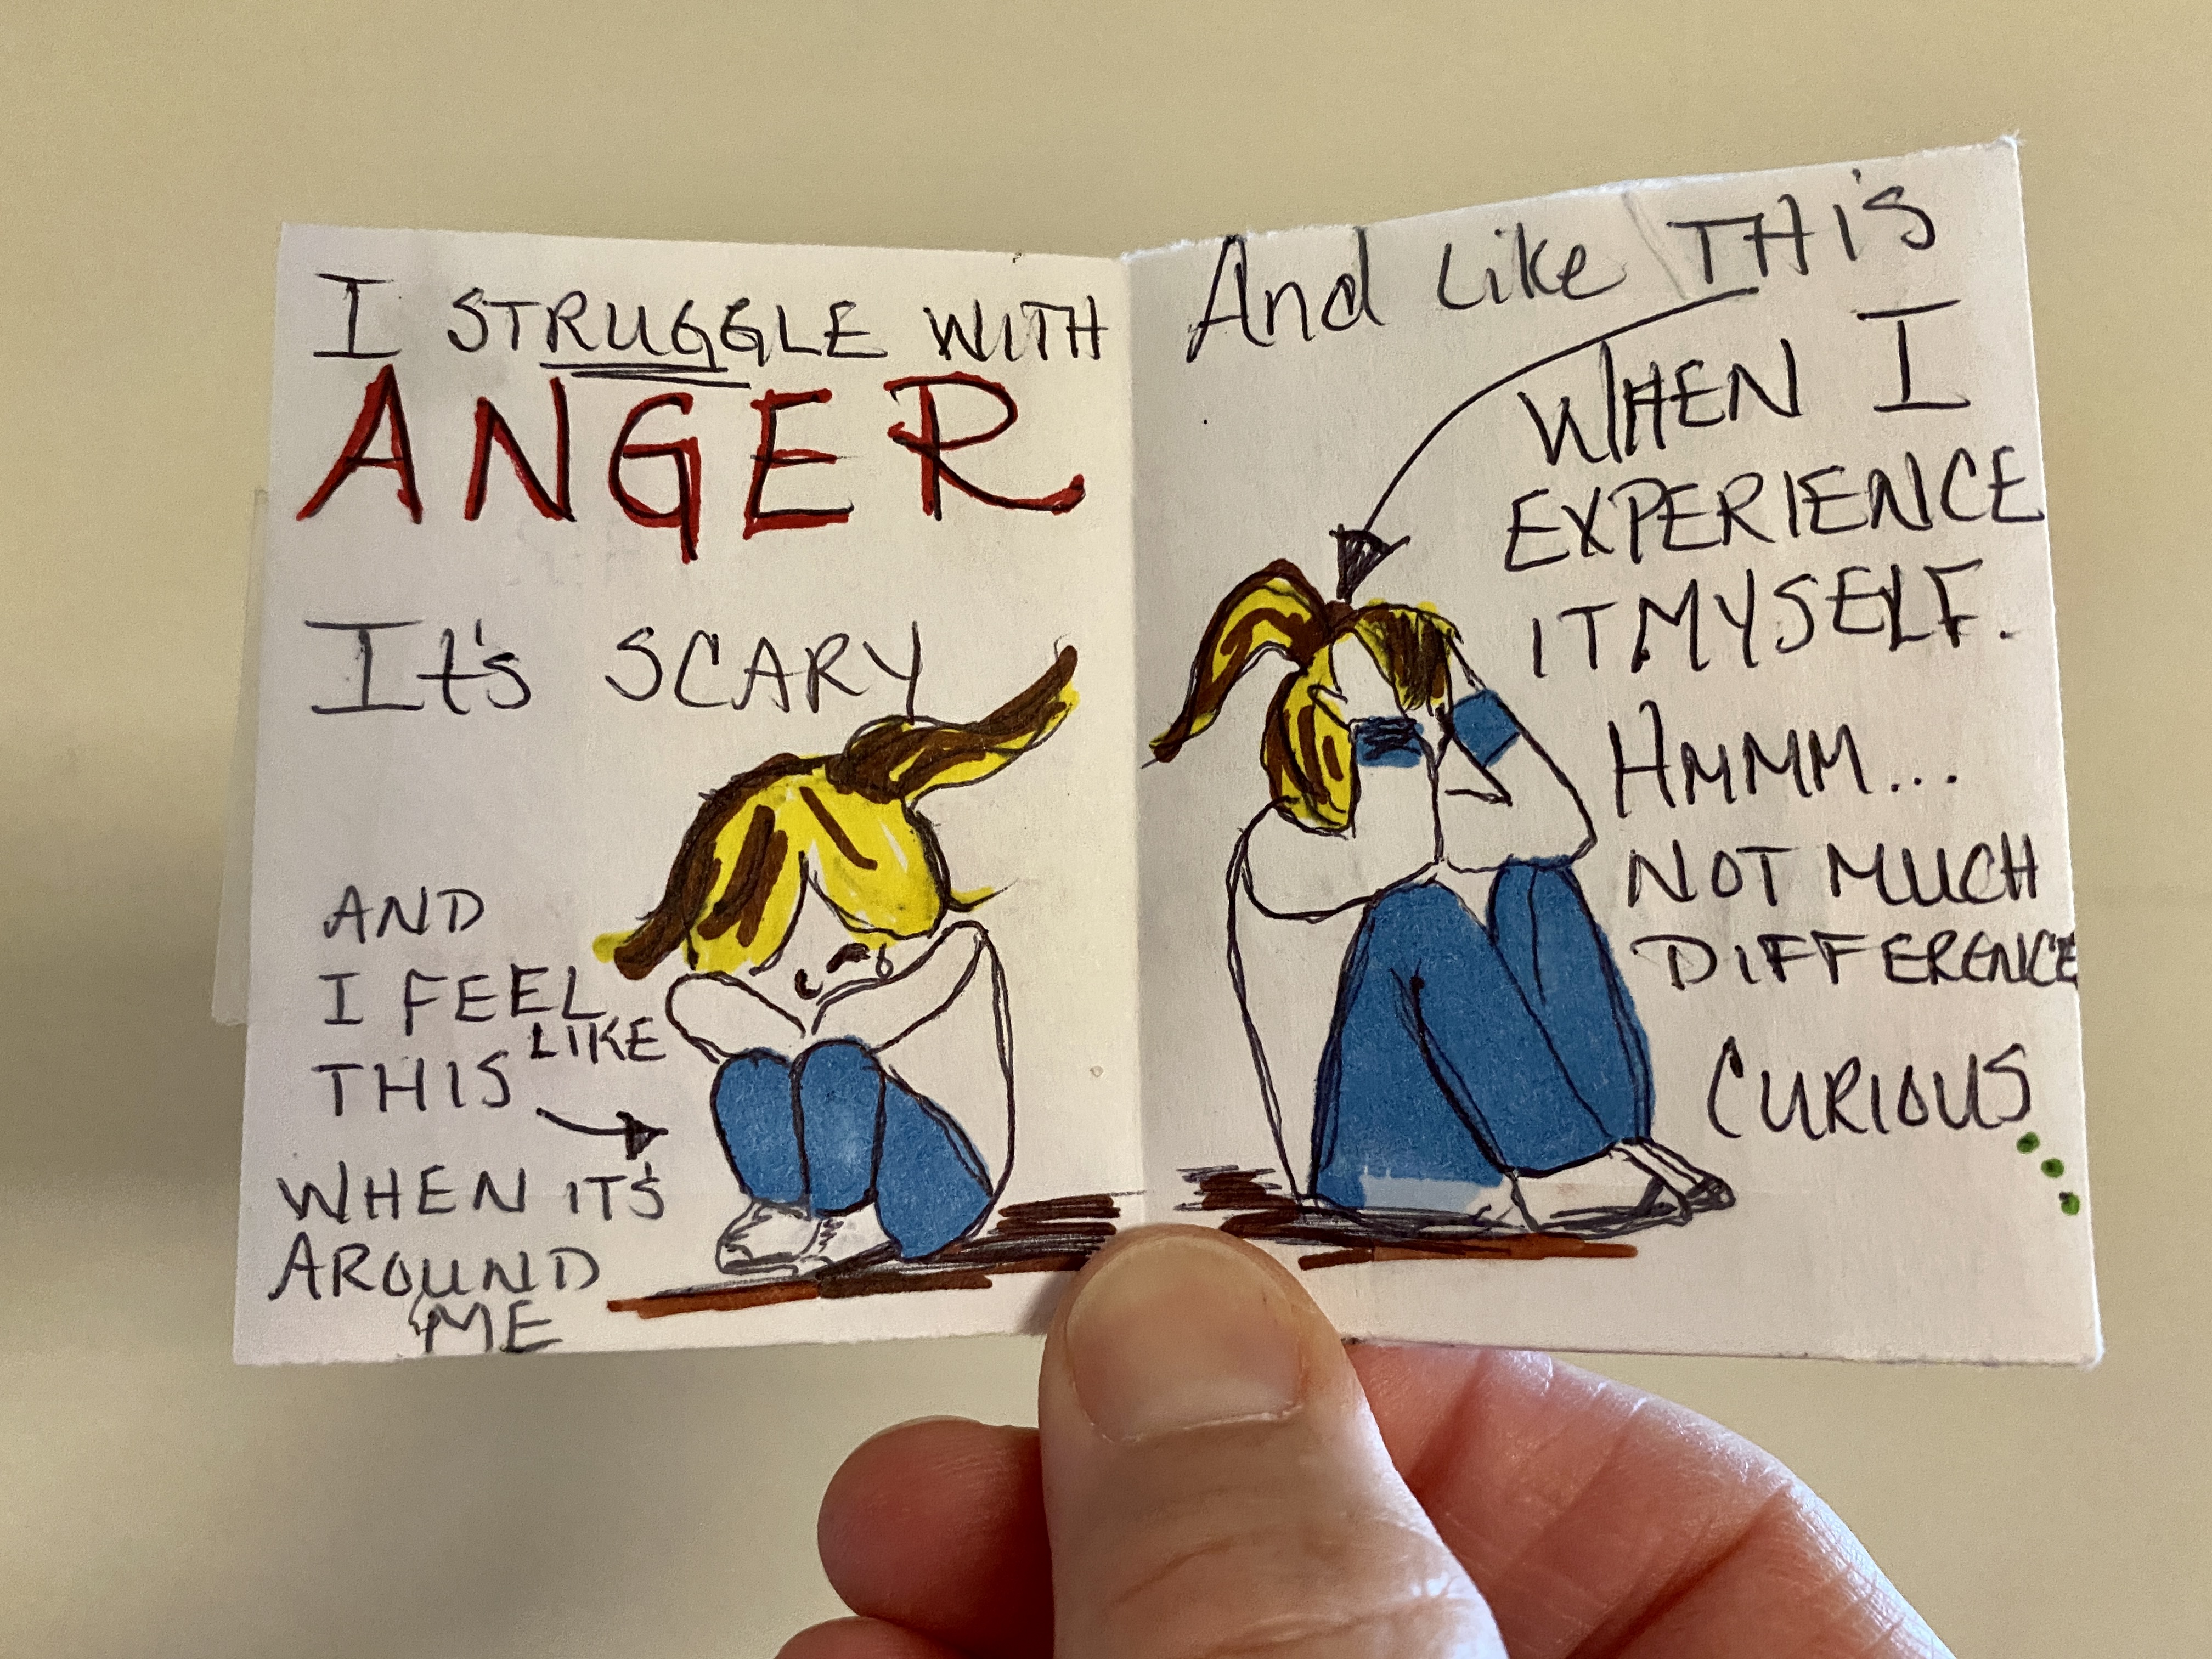 I STRUGGLE WITH
ANGER
It's SCARY
AND
I FEEL
LIKE
THIS
WHEN IT'S
AROUND
ME
And Like THiS
WHEN I
EXPERIENCE
IT MYSELF.
HMMM...
NOT MUCH
DIFFERENCE
CURIOUS...